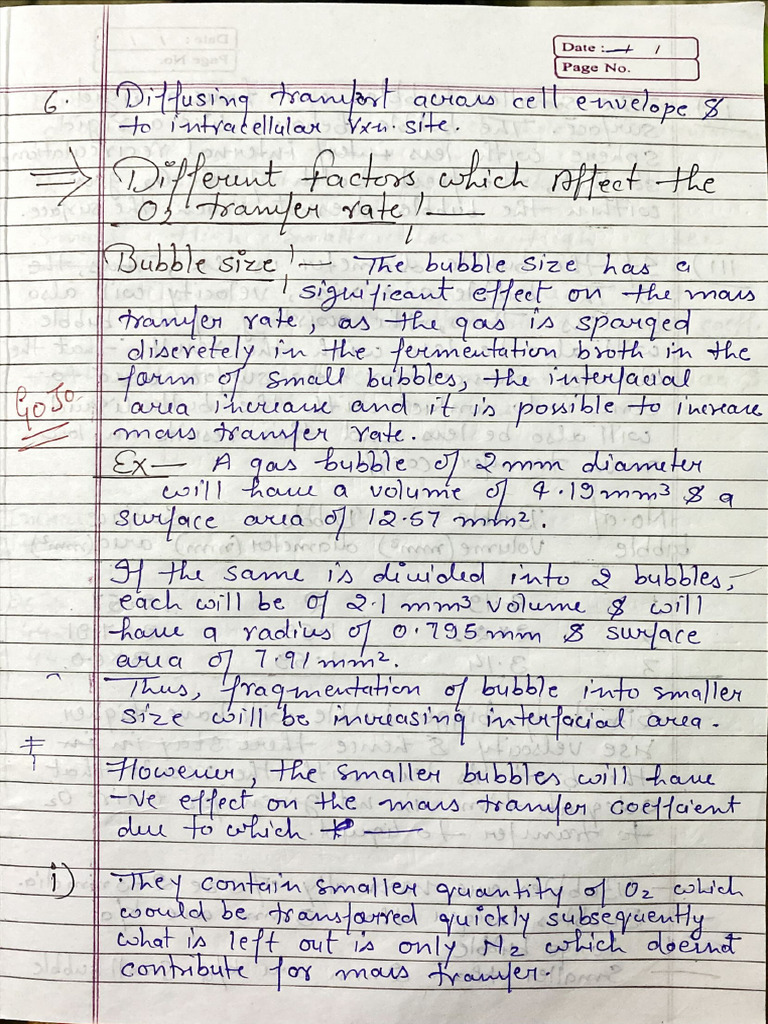 Date :
Page No.
6. Diffusing transfort across cell envelope &
to intracellular rxn. site.
⇒ Different factors which Affect the
O2 transfer rate! —
Bubble size !— The bubble size has a
significant effect on the mass
transfer rate, as the gas is sparged
discretely in the fermentation broth in the
form of small bubbles, the interfacial
area increase and it is possible to increase
mass transfer rate.
Ex— A gas bubble of 2 mm diameter
will have a volume of 4.19 mm³ & a
surface area of 12.57 mm².
If the same is divided into 2 bubbles,
each will be of 2.1 mm³ volume & will
have a radius of 0.795 mm & surface
area of 7.91 mm².
Thus, fragmentation of bubble into smaller
size will be increasing interfacial area.
However, the smaller bubbles will have
-ve effect on the mass transfer coeffcient
due to which —
i) They contain smaller quantity of O2 which
would be transfarred quickly subsequently
what is left out is only N2 which doesnt
contribute for mass transfer.